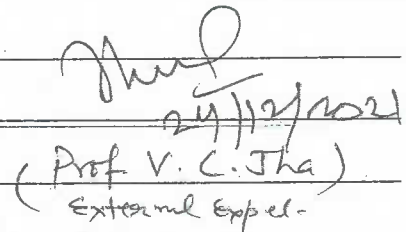 24/12/2021
(Prof. V. C. Jha)
External Expert